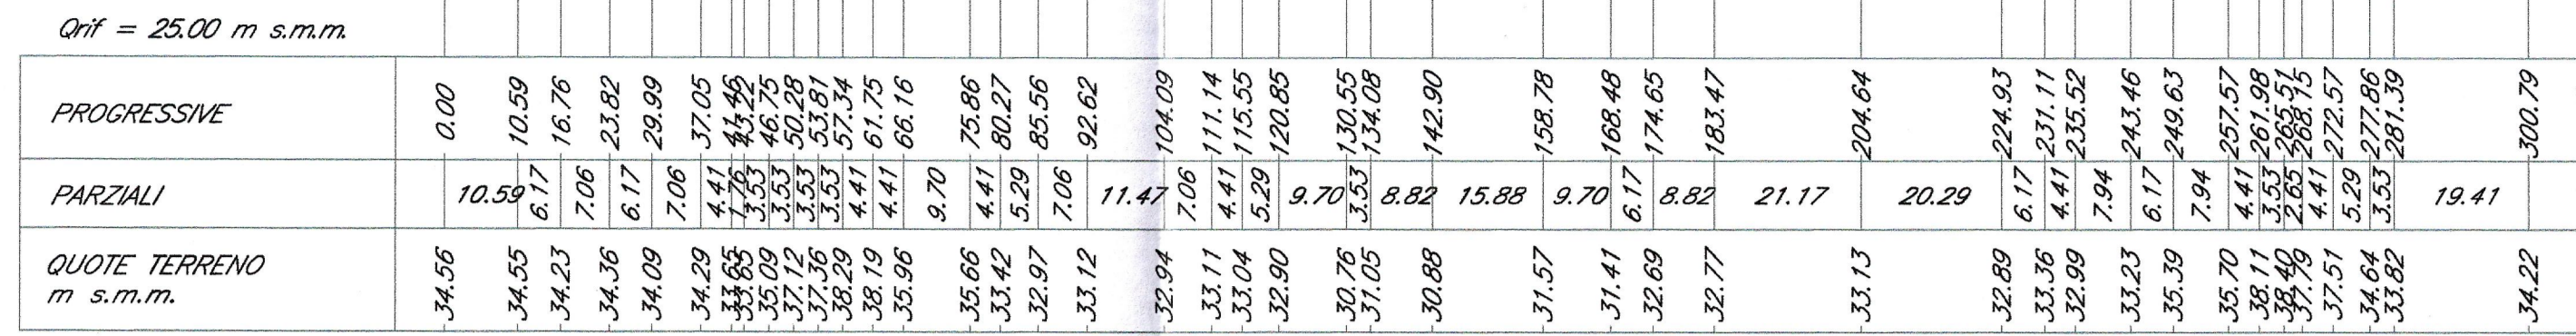 Qrif = 25.00 m s.m.m.
PROGRESSIVE 0.00 10.59 16.76 23.82 29.99 37.05 41.46 43.22 46.75 50.28 53.81 57.34 61.75 66.16 75.86 80.27 85.56 92.62 104.09 111.14 115.55 120.85 130.55 134.08 142.90 158.78 168.48 174.65 183.47 204.64 224.93 231.11 235.52 243.46 249.63 257.57 261.98 265.51 268.15 272.57 277.86 281.39 300.79
PARZIALI 10.59 6.17 7.06 6.17 7.06 4.41 1.76 3.53 3.53 3.53 3.53 4.41 4.41 9.70 4.41 5.29 7.06 11.47 7.06 4.41 5.29 9.70 3.53 8.82 15.88 9.70 6.17 8.82 21.17 20.29 6.17 4.41 7.94 6.17 7.94 4.41 3.53 2.65 4.41 5.29 3.53 19.41
QUOTE TERRENO 34.56 34.55 34.23 34.36 34.09 34.29 33.65 33.65 35.09 37.12 37.36 38.29 38.19 35.96 35.66 33.42 32.97 33.12 32.94 33.11 33.04 32.90 30.76 31.05 30.88 31.57 31.41 32.69 32.77 33.13 32.89 33.36 32.99 33.23 35.39 35.70 38.11 38.40 37.79 37.51 34.64 33.82 34.22
m s.m.m.